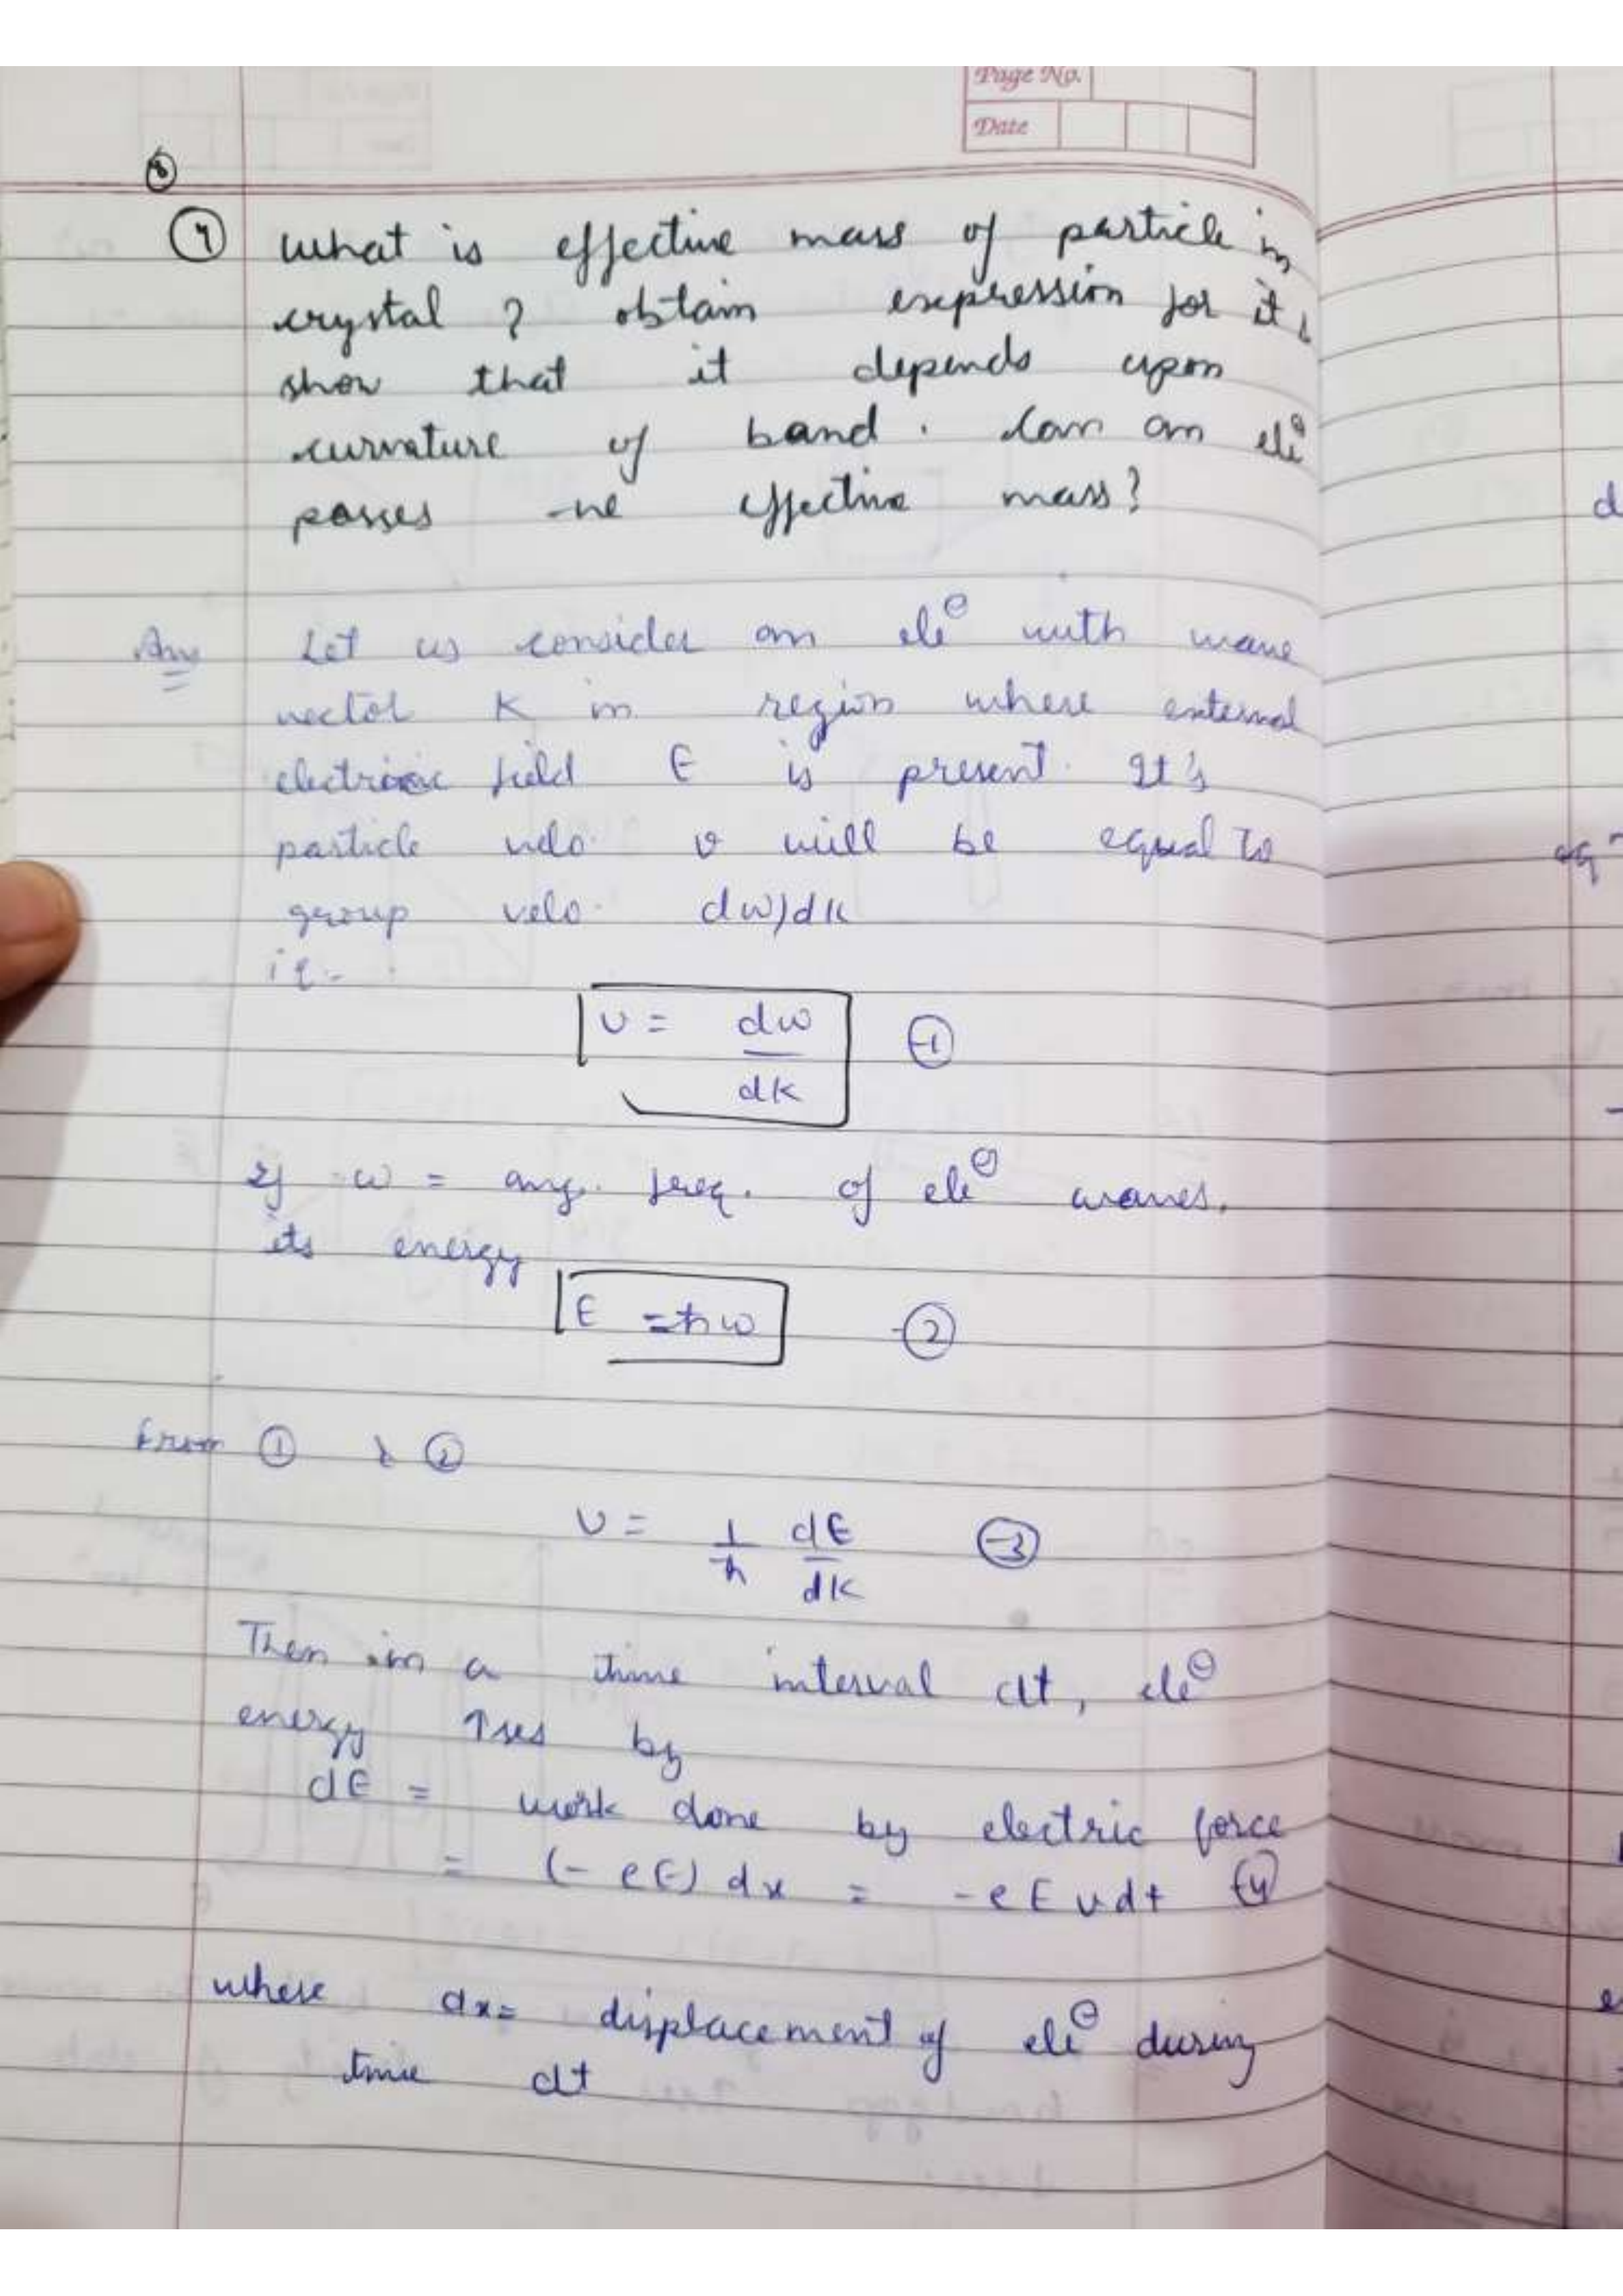 Page No.
Date
8
7 what is effective mass of particle in
crystal ? obtain expression for it &
show that it depends upon
curvature of band . Can an ele⊖
posses -ve effective mass?
Ans Let us consider an ele⊖ with wave
vector K in region where external
electric field E is present. It's
particle velo. v will be equal to
group velo. dw/dk
ie.
v = dw/dk -1
If w = ang. freq. of ele⊖ waves.
its energy
E = ħw -2
from 1 & 2
v = 1/ħ dE/dk -3
Then in a time interval dt, ele⊖
energy ↑ses by
dE = work done by electric force
= (-eE) dx = -eEvdt -4
where dx= displacement of ele⊖ during
time dt
d